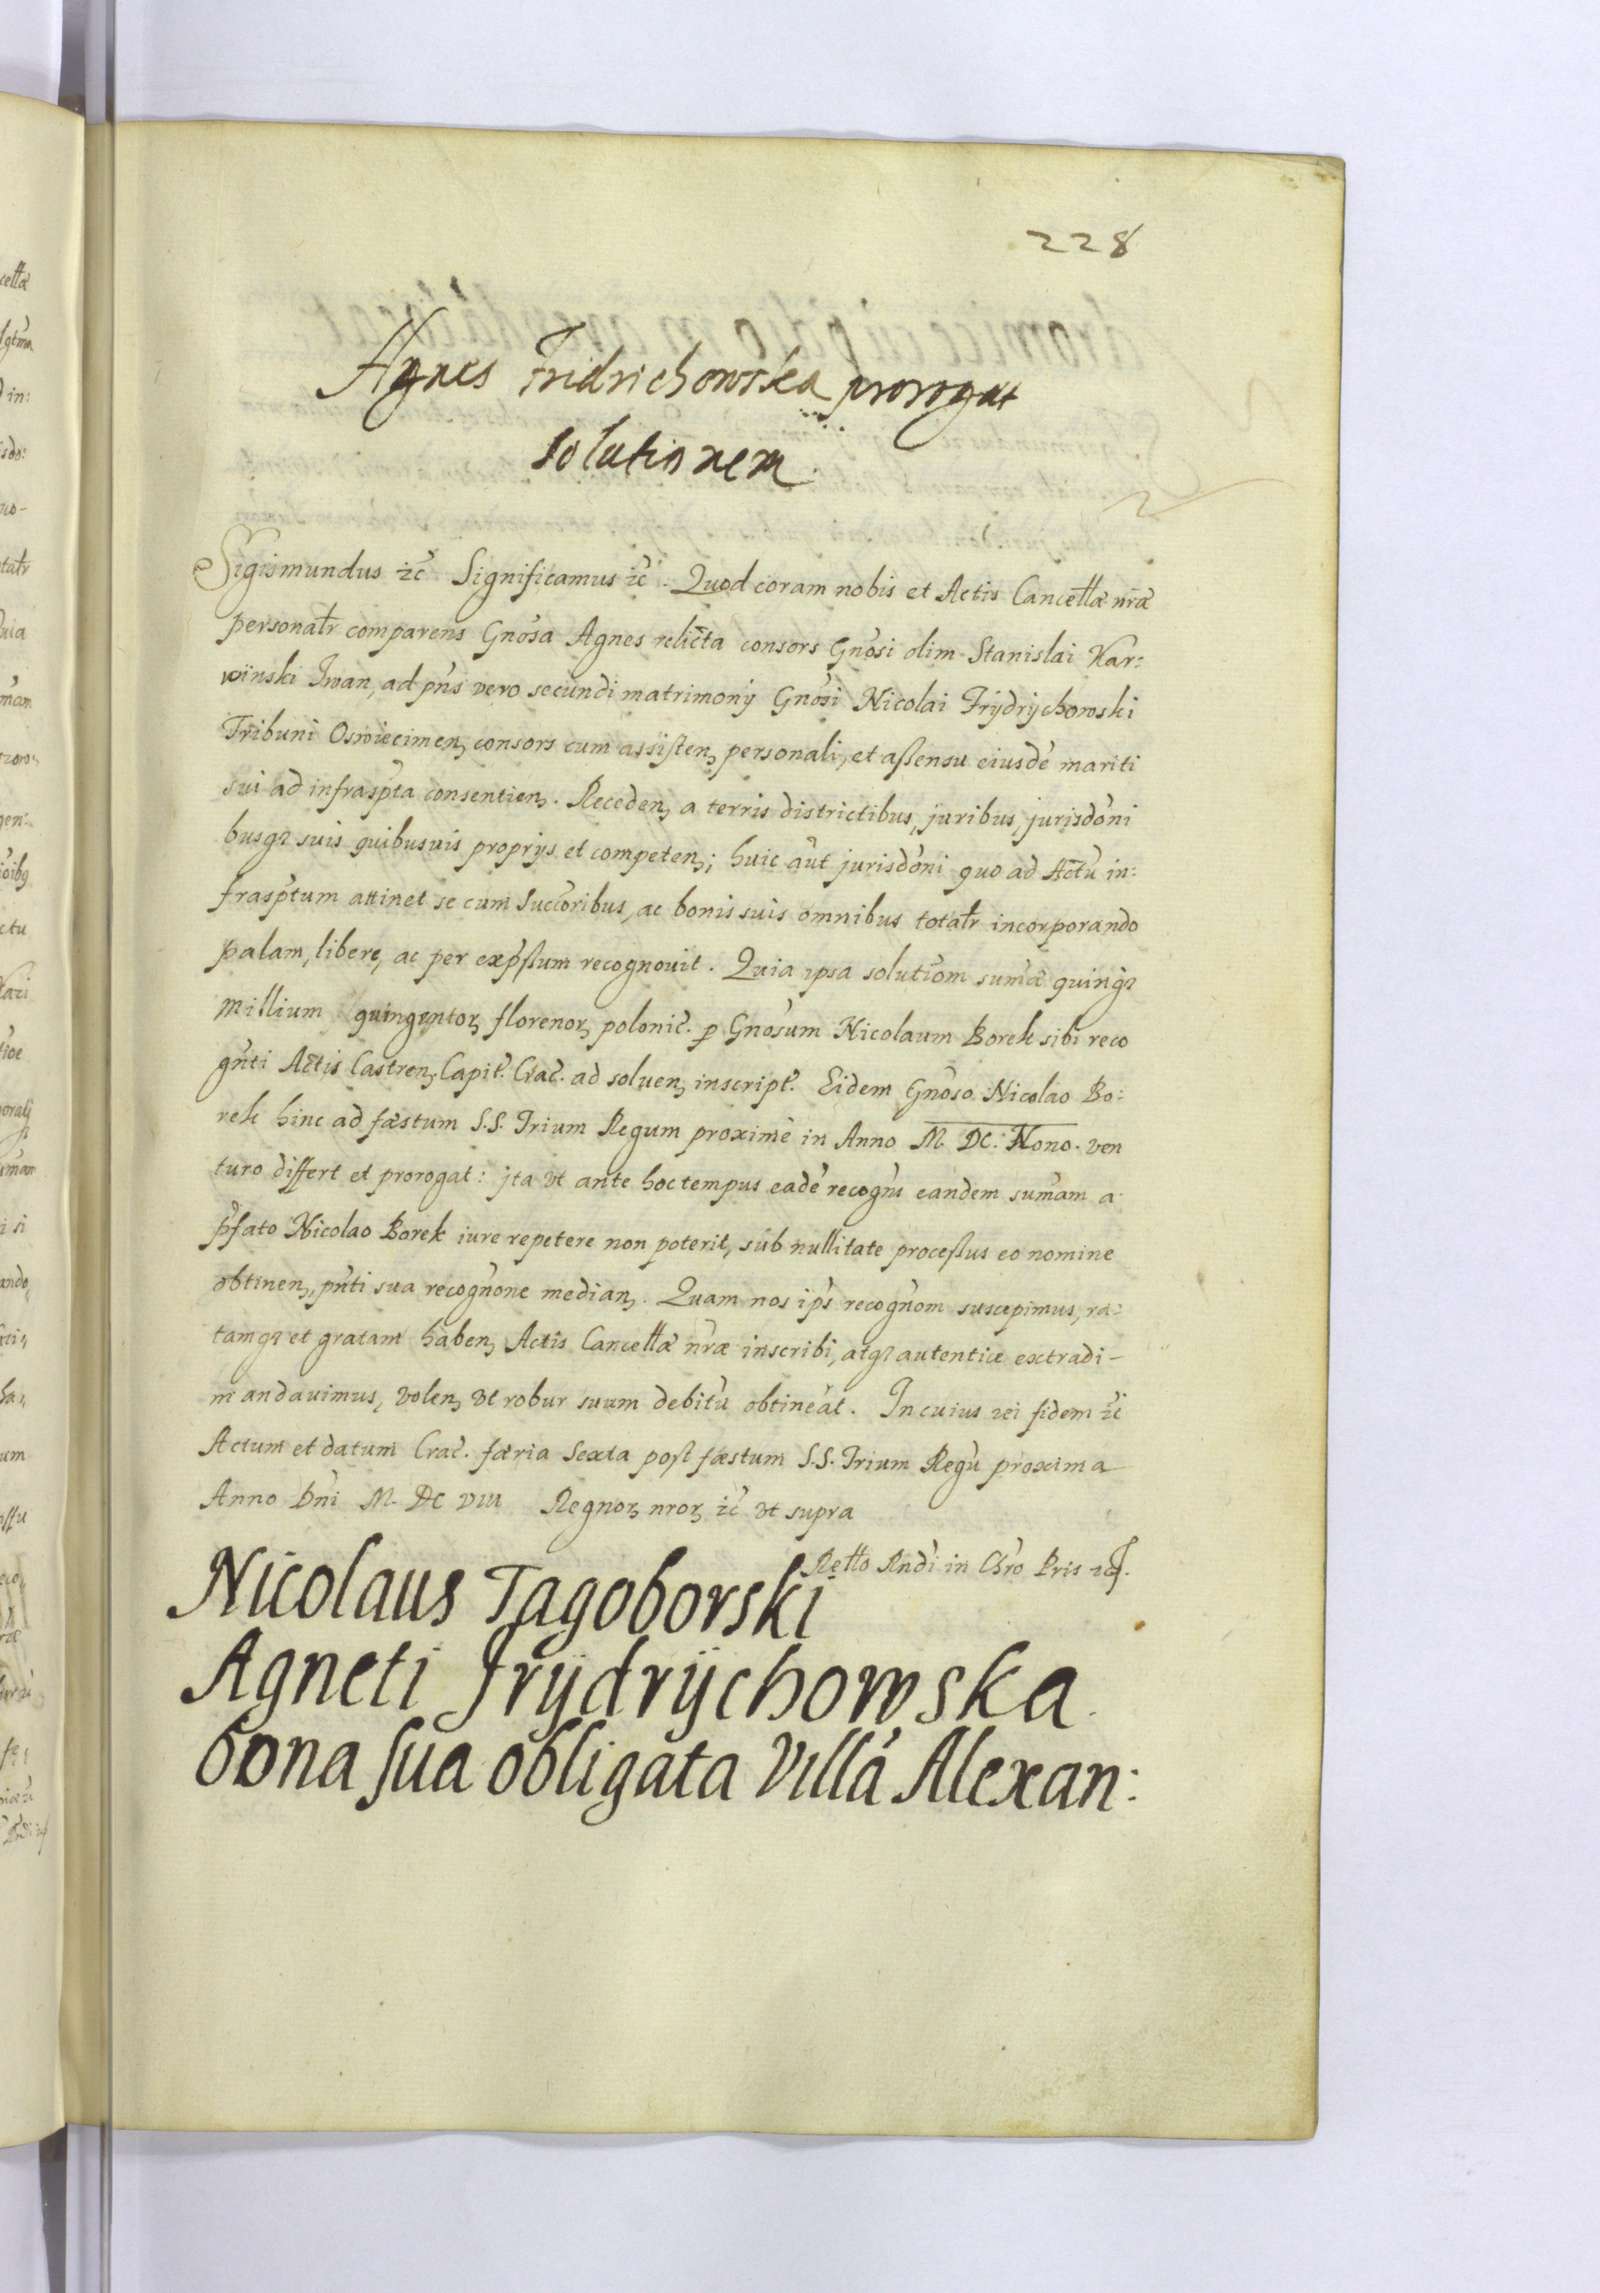 228
Agnes Fridrichowska prorogat
solutionem.
Sigismundus etc̃ Significamus etc̃. Quod coram nobis et Actis Cancellæ nr̃æ
personalr̃ comparens Gnõsa Agnes relicta consors Gnõsi olim Stanislai Kar:
winski Iwan, ad pñs vero secundi matrimonÿ Gnõsi Nicolai Frÿdrÿchowski
Tribuni Oswiecimenꝫ consors cum assistenꝫ personali, et assensu eiusdẽ mariti
sui ad infrasp̃ta consentienꝫ. Recedenꝫ a terris districtibus, juribus, jurisdõni
busqꝫ suis quibusuis proprÿs et competenꝫ; huic aũt jurisdõni quo ad Actũ in:
frasp̃tum attinet se cum succõribus, ac bonis suis omnibus totalr̃ incorporando
palam, libere, ac per exp̃ssum recognouit. Quia ipsa solutiõm sum̃æ quinqꝫ
Millium quingentoꝝ florenoꝝ polonic̃. ꝑ Gnõsum Nicolaum Borek sibi reco
gñti Actis Castrenꝫ Capit̃. Crac̃. ad soluenꝫ inscript̃. Eidem Gnõso Nicolao Bo:
rek hinc ad fæstum S.S. Trium Regum proximè in Anno M. DC. Nono. ven
turo differt et prorogat: jta vt ante hoc tempus eadẽ recogñs eandem sum̃am a
p̃fato Nicolao Borek iure repetere non poterit, sub nullitate processus eo nomine
obtinenꝫ, pñti sua recognõne medianꝫ. Quam nos ip̃s recognõm suscepimus, ra:
tamqꝫ et gratam habenꝫ Actis Cancellæ nr̃æ inscribi, atqꝫ autentice extradi-
mandauimus, volenꝫ vt robur suum debitũ obtineat. In cuius rei fidem etc̃
Actum et datum Crac̃. færia Sexta post fæstum S.S. Trium Regũ proxima
Anno Dñi M. DC VIII Regnoꝝ nroꝝ etc̃ vt supra
Rello Rndĩ in Chro Pris etc.
Nicolaus Tagoborski
Agneti frÿdrÿchowska
bona sua obligata Villã Alexan: